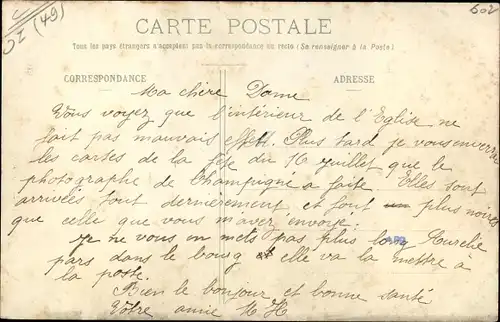 502
OE (49)
CARTE POSTALE
Tous les pays étrangers n'acceptent pas la correspondance au recto (Se renseigner à la Poste)
CORRESPONDANCE
ADRESSE
Ma chère Dame
Vous voyez que l'intérieur de l'Eglise ne
fait pas mauvais effet. Plus tard je vous enverrai
les cartes de la fête du 16 juillet que le
photographe de Champigné a faite. Elles sont
arrivées tout dernièrement et sont plus noires
que celle que vous m'avez envoyé.
Je ne vous en mets pas plus long Aurelie
pars dans le bourg et elle va la mettre à
la poste.
Bien le bonjour et bonne santé
Votre amie H H